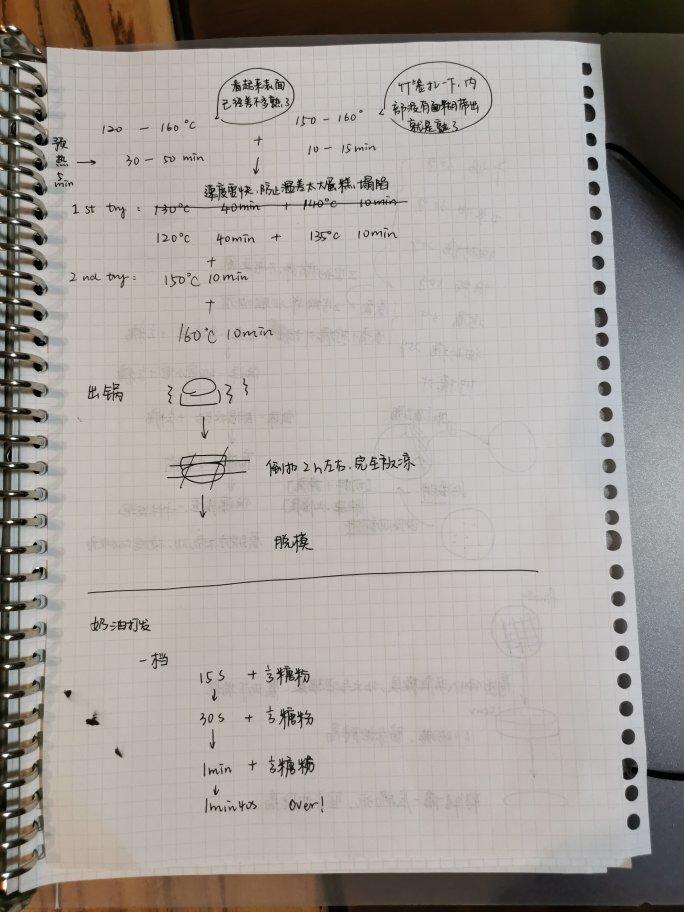 看起来表面
已经差不多熟了
竹签扎一下,内
部没有面糊带出
就是熟了
预热5min → 120 - 160°C + 150 - 160°
30 - 50 min 10 - 15min
速度要快,防止温差太大蛋糕塌陷
1st try: 130°C 40min + 140°C 10min
120°C 40min + 135°C 10min
+
2nd try: 150°C 10min
+
160°C 10min
出锅
倒扣2h左右,完全放凉
脱模
奶油打发
一档
15s + 1/3糖粉
30s + 1/3糖粉
1min + 1/3糖粉
1min40s over!